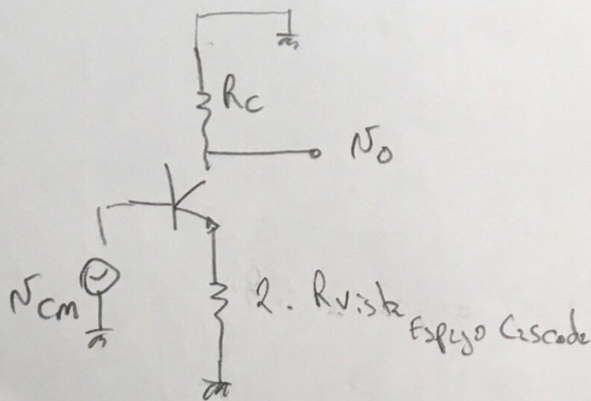 Rc
No
Ncm
2. Rvista Espejo Cascode